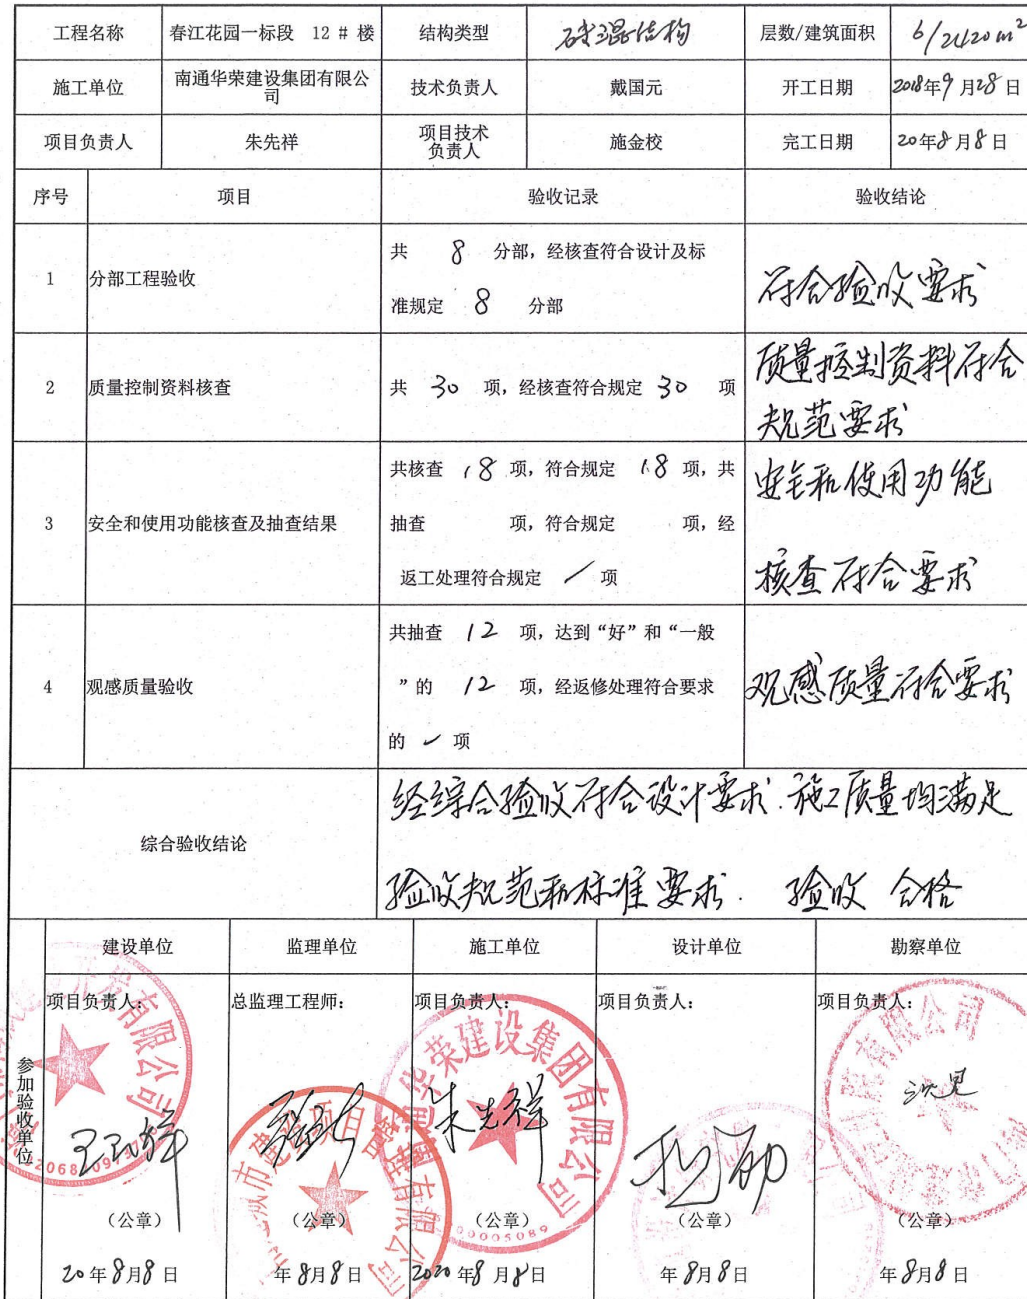 工程名称 春江花园一标段 12 # 楼 结构类型 砖混结构 层数/建筑面积 6/2420m²
施工单位 南通华荣建设集团有限公司 技术负责人 戴国元 开工日期 2018年9月28日
项目负责人 朱先祥 项目技术负责人 施金校 完工日期 20年8月8日
序号 项目 验收记录 验收结论
1 分部工程验收 共 8 分部，经核查符合设计及标
准规定 8 分部
符合验收要求
2 质量控制资料核查 共 30 项，经核查符合规定 30 项
质量控制资料符合
规范要求
3 安全和使用功能核查及抽查结果
共核查 18 项，符合规定 18 项，共
抽查 项，符合规定 项，经
返工处理符合规定 / 项
安全和使用功能
核查符合要求
4 观感质量验收
共抽查 12 项，达到“好”和“一般
”的 12 项，经返修处理符合要求
的 / 项
观感质量符合要求
综合验收结论
经综合验收符合设计要求.施工质量均满足
验收规范和标准要求. 验收 合格
参加验收单位
建设单位 监理单位 施工单位 设计单位 勘察单位
项目负责人： 总监理工程师： 项目负责人： 项目负责人： 项目负责人：
朱先祥
华荣建设集团有限公司
有限公司
（公章） （公章） （公章） （公章） （公章）
20年8月8日 年8月8日 2020年8月8日 年8月8日 年8月8日